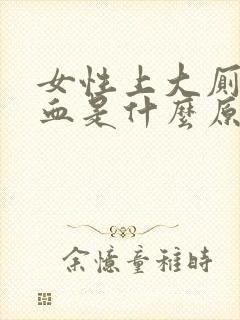 女性上大厕
血是什麼原
余憶童稚時